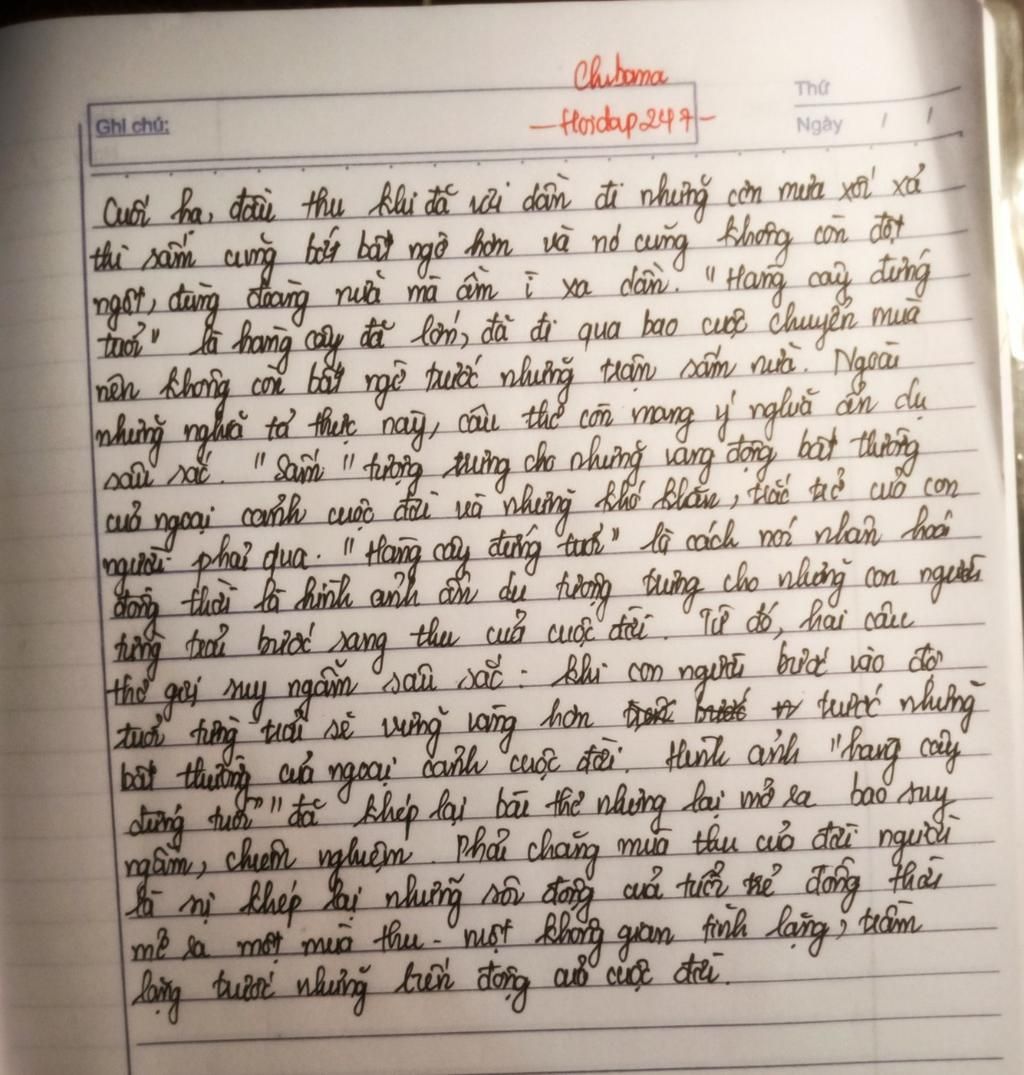 Chuboma
Ghi chú:
Thứ
—Hoidap247—
Ngày / /
Cuối hạ, đầu thu khi đã vơi dần đi những cơn mưa xối xả
thì sấm cũng bớt bất ngờ hơn và nó cũng không còn đột
ngột, đùng đoàng nữa mà ầm ì xa dần. "Hàng cây đứng
tuổi" là hàng cây đã lớn, đã đi qua bao cuộc chuyển mùa
nên không còn bất ngờ trước những trận sấm nữa. Ngoài
những nghĩa tả thực này, câu thơ còn mang ý nghĩa ẩn dụ
sâu sắc. "Sấm" tượng trưng cho những vang động bất thường
của ngoại cảnh cuộc đời và những khó khăn, trắc trở của con
người phải qua. "Hàng cây đứng tuổi" là cách nói nhân hoá
đồng thời là hình ảnh ẩn dụ tượng trưng cho những con người
từng trải bước sang thu của cuộc đời. Từ đó, hai câu
thơ gợi suy ngẫm sâu sắc: khi con người bước vào độ
tuổi từng trải sẽ vững vàng hơn trước những
bất thường của ngoại cảnh cuộc đời. Hình ảnh "hàng cây
đứng tuổi" đã khép lại bài thơ nhưng lại mở ra bao suy
ngẫm, chiêm nghiệm. Phải chăng mùa thu của đời người
là sự khép lại những sôi động của tuổi trẻ đồng thời
mở ra một mùa thu - một không gian tĩnh lặng, trầm
lặng trước những biến động của cuộc đời.